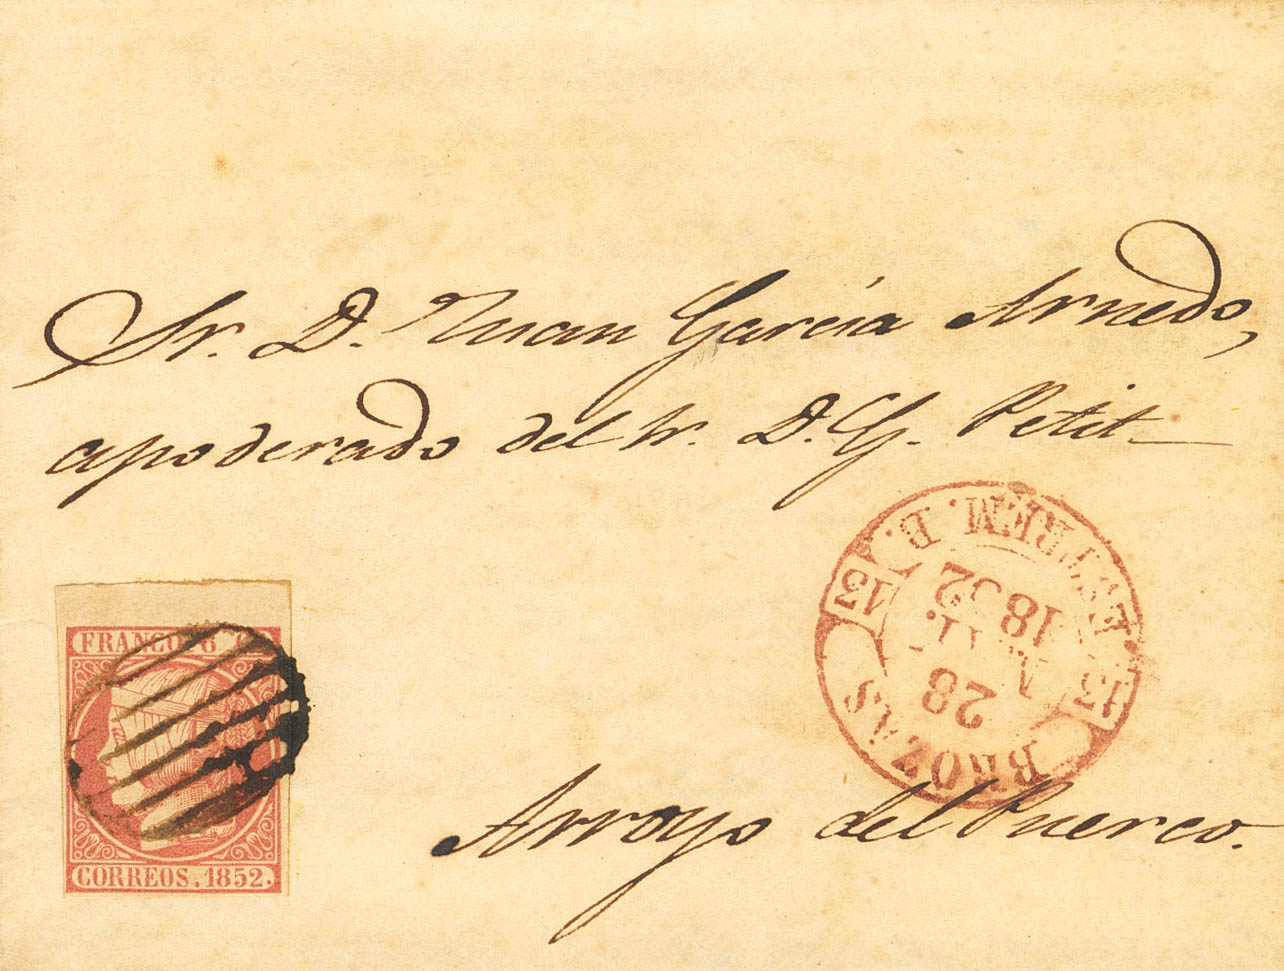 Sr. D. Juan García Arnedo,
apoderado del Sr. D. G. Petit
FRANCO 6
CORREOS. 1852.
BROZAS
28
1852
ESTREM. B.
13
13
Arroyo del Puerco.